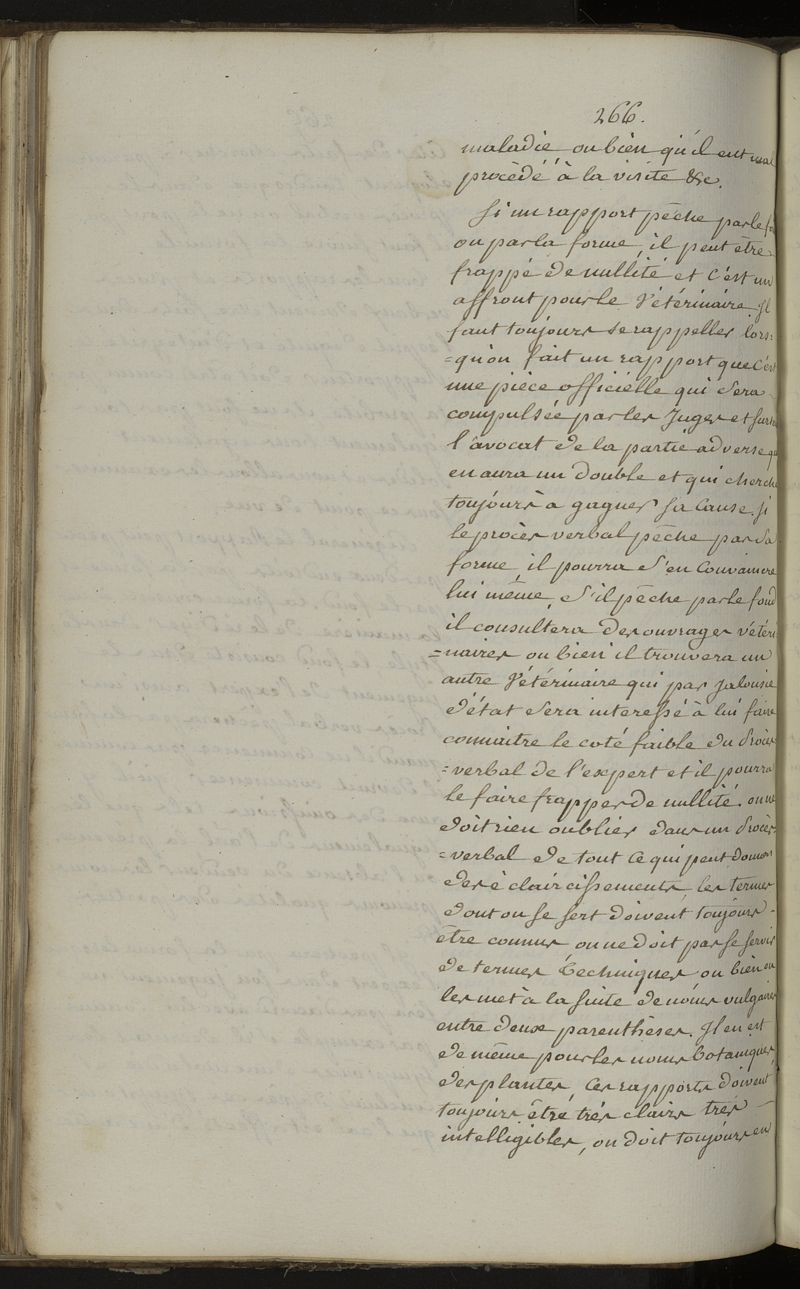 266.
maladie ou bien qu'il eut mal
procédé à la visite &c.
Si un rapport pêche par le
ou par la forme, il peut être
frappé de nullité et c'est un
affront pour le Vétérinaire. Il
faut toujours se rappeller lors=
=qu'on fait un rapport que c'est
une pièce officielle qui sera
compulsée par les Juges et
l'avocat de la partie adverse qui
en aura un double et qui cherche
toujours à gagner sa cause. si
le procès verbal pêche par sa
forme il pourra s'en convaincre
lui même, s'il pêche par le fond
il consultera des ouvrages vétéri
=naires ou bien il trouvera un
autre Vétérinaire qui par jalousie
d'état sera interessé à lui faire
connaitre le coté faible du Procès
=verbal de l'expert et il pourra
le faire frapper de nullité. on ne
doit rien oublier dans un Procès=
=verbal de tout ce qui peut donner
des éclaircissements, les termes
dont on se sert doivent toujours -
être connus on ne doit pas se servir
de termes techniques ou bien on
les met à la suite de noms vulgaires
entre deux parenthèses. Il en est
de même pour les noms botaniques
des plantes, ces rapports doivent
toujours être très clairs très -
intelligibles, on doit toujours en